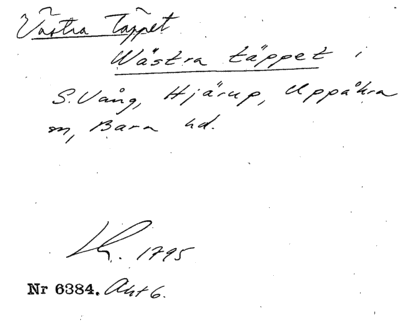 Västra Täppet
Wästra täppet i
S. Vång, Hjärup, Uppåkra
sn, Bara hd.
Lh. 1795
Nr 6384. Akt 6.